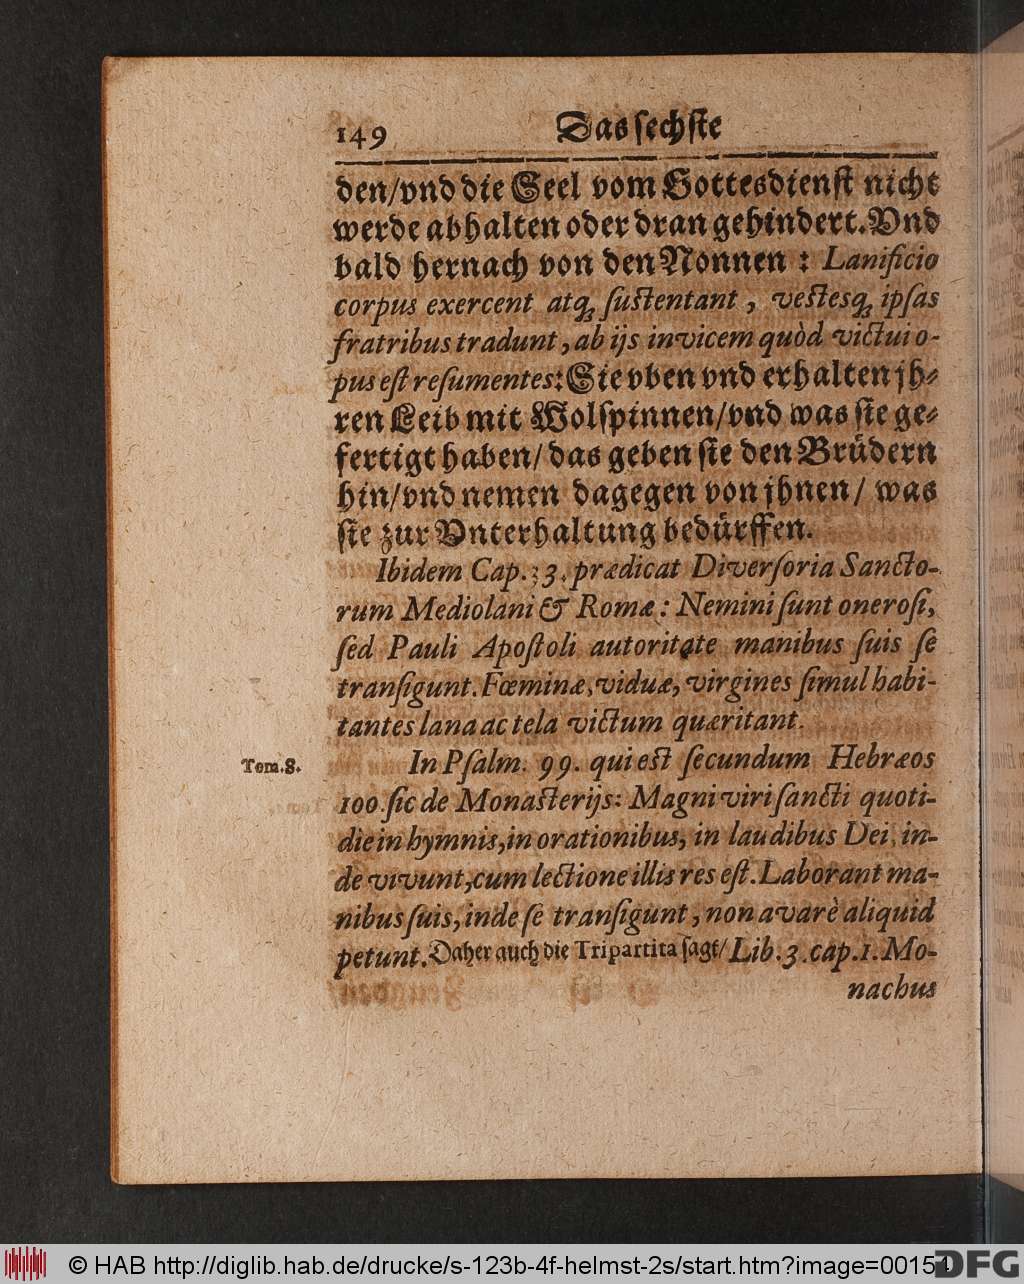 149 Das sechste
den/vnd die Seel vom Gottesdienst nicht
werde abhalten oder dran gehindert. Vnd
bald hernach von den Nonnen: Lanificio
corpus exercent atq; ſuſtentant, veſtesq; ipſas
fratribus tradunt, ab ijs invicem quòd victui o-
pus eſt reſumentes: Sie vben vnd erhalten jh⸗
ren Leib mit Wolspinnen/vnd was sie ge⸗
fertigt haben/das geben sie den Brüdern
hin/vnd nemen dagegen von jhnen/ was
sie zur Vnterhaltung bedürffen.
Ibidem Cap. 33. prædicat Diverſoria Sancto-
rum Mediolani & Romæ: Nemini ſunt oneroſi,
ſed Pauli Apoſtoli autoritate manibus ſuis ſe
tranſigunt. Fœminæ, viduæ, virgines ſimul habi-
tantes lana ac tela victum quæritant.
Tom. 8.
In Pſalm. 99. qui eſt ſecundum Hebræos
100. ſic de Monaſterijs: Magni viri ſancti quoti-
die in hymnis, in orationibus, in laudibus Dei, in-
de vivunt, cum lectione illis res eſt. Laborant ma-
nibus ſuis, inde ſe tranſigunt, non avarè aliquid
petunt. Daher auch die Tripartita sagt/ Lib. 3. cap. 1. Mo-
nachus
© HAB http://diglib.hab.de/drucke/s-123b-4f-helmst-2s/start.htm?image=00154
DFG